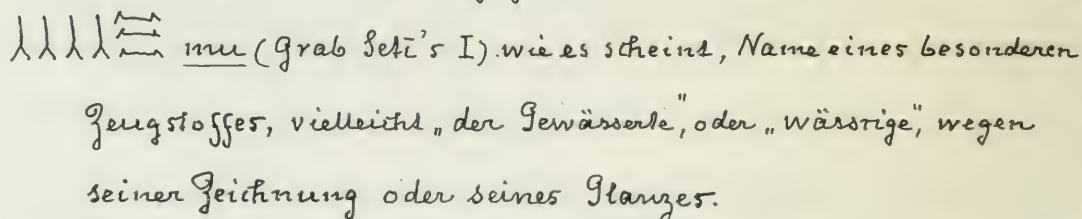 mu (Grab Seti's I). wie es scheint, Name eines besonderen
Zeugstoffes, vielleicht „der Gewässerte", oder „wässrige", wegen
seiner Zeichnung oder seines Glanzes.